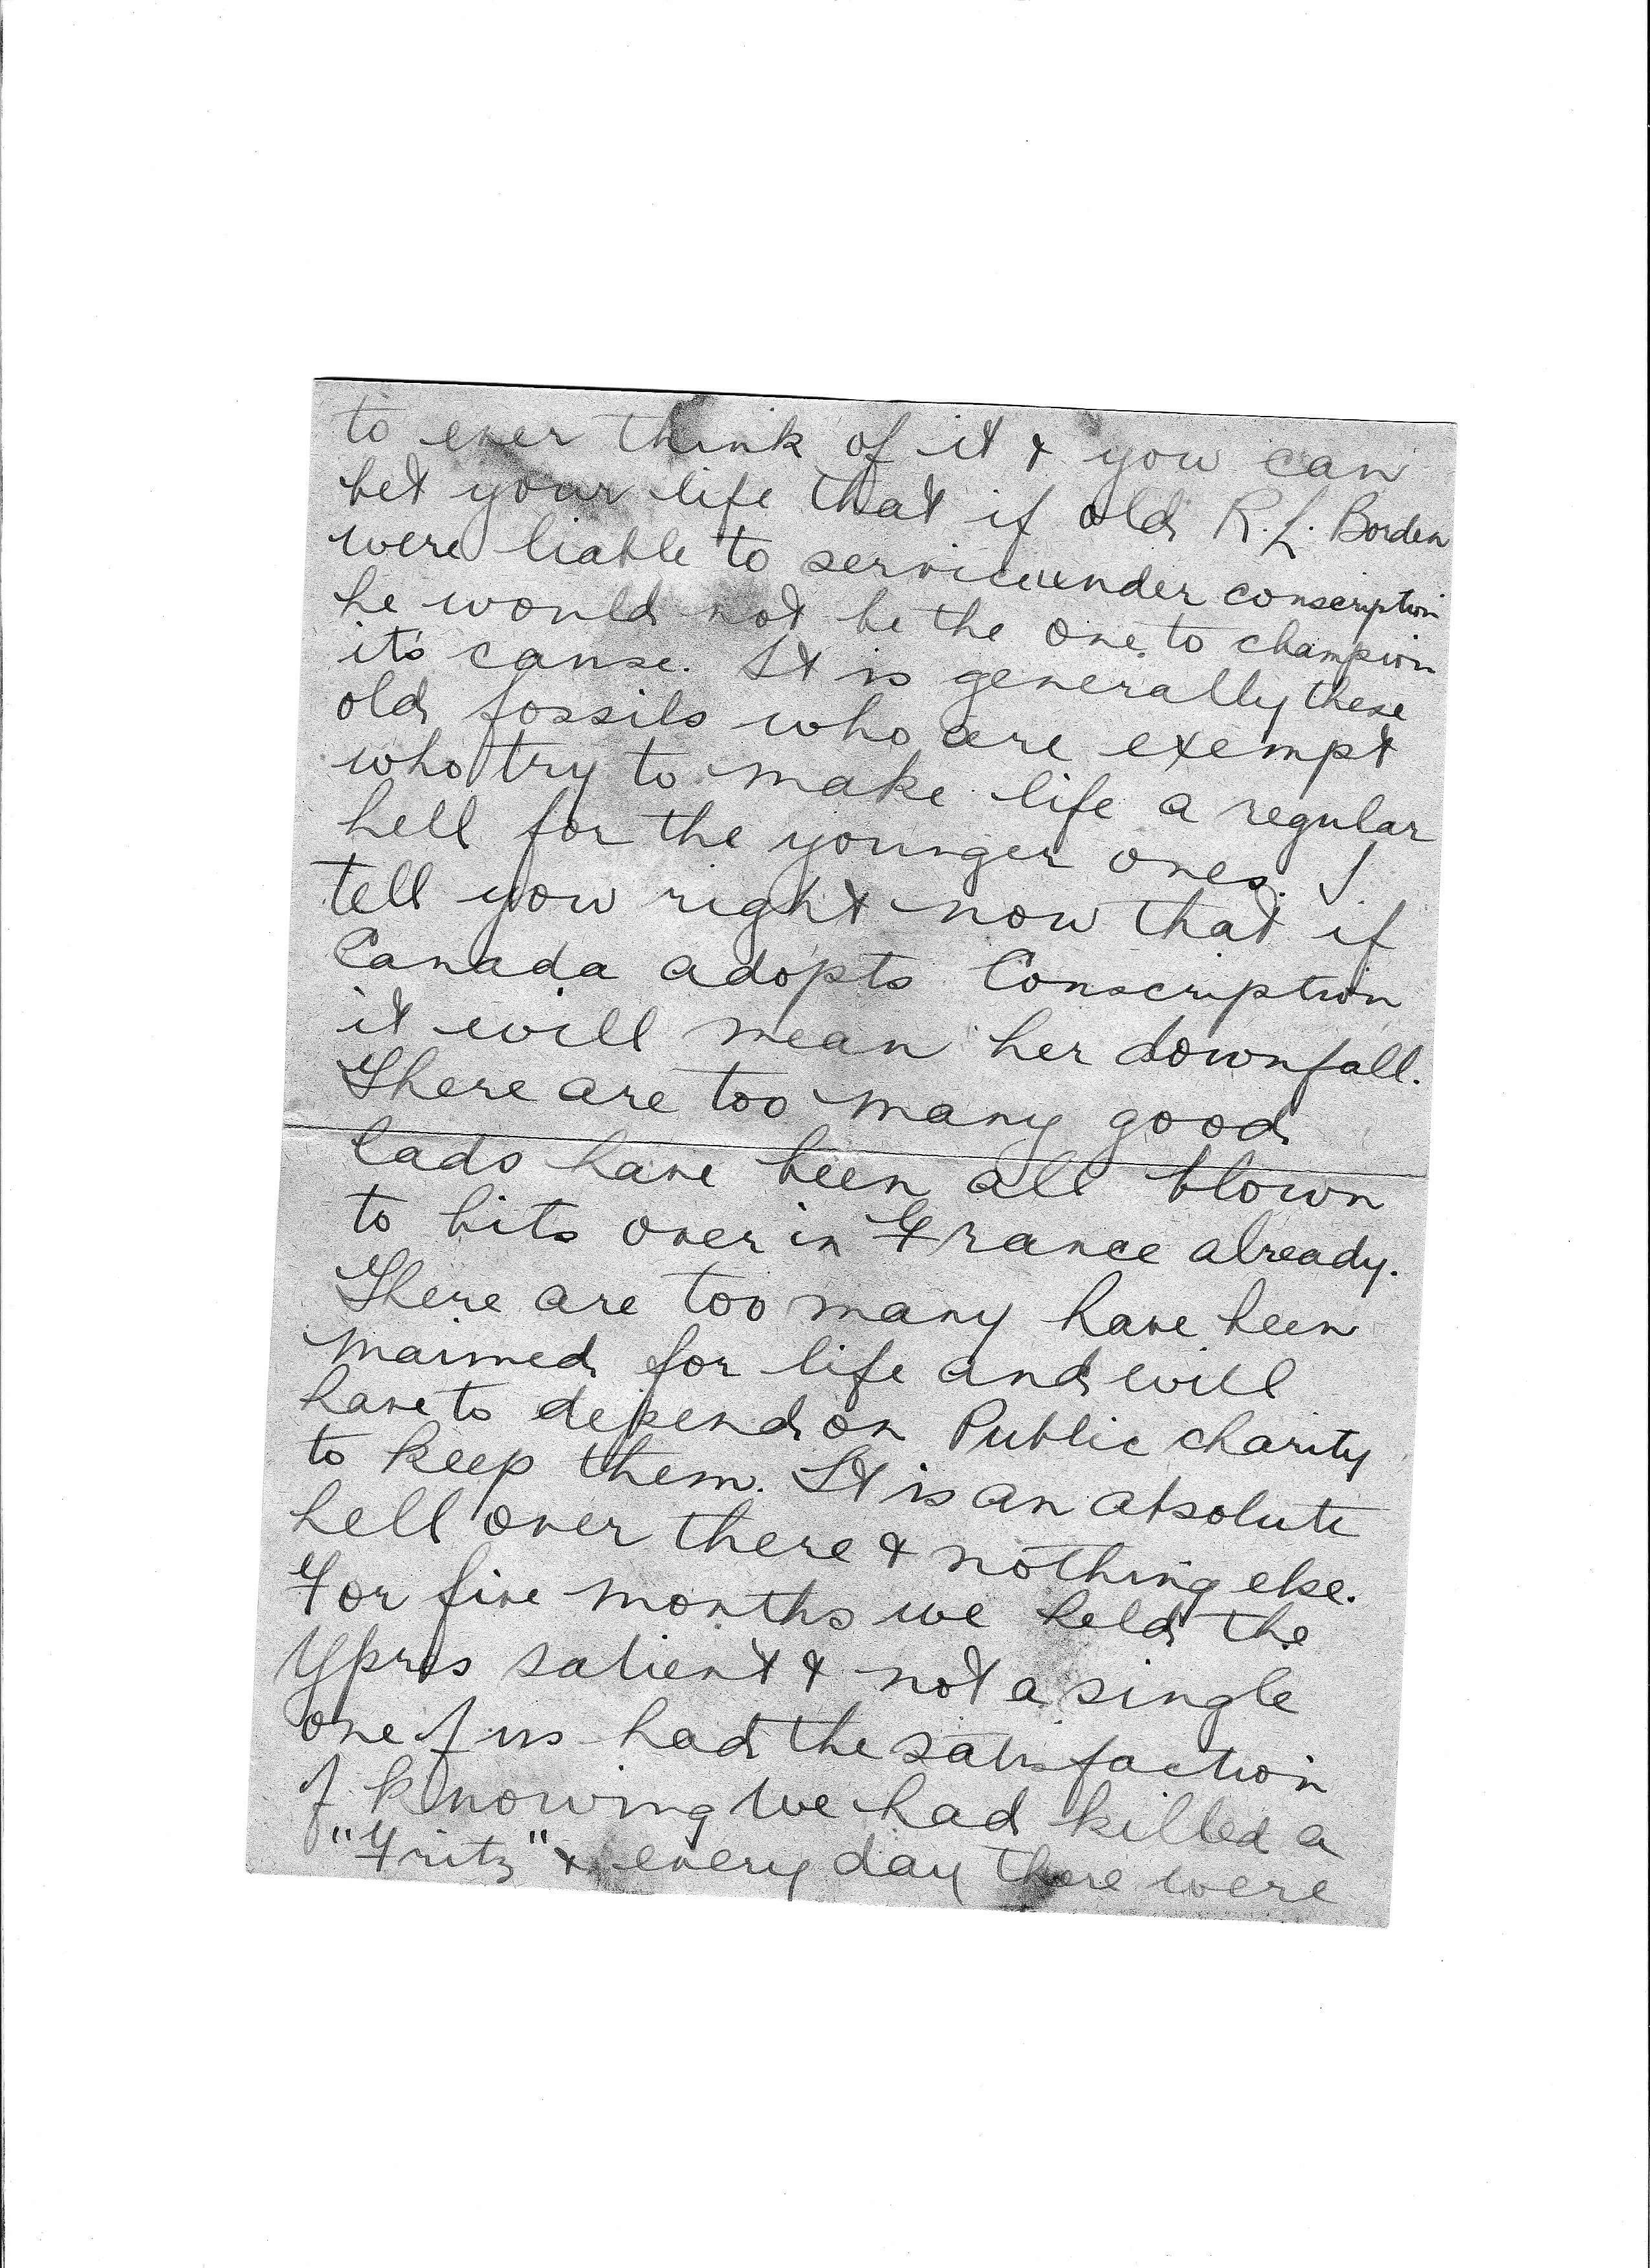 to ever think of it & you can
bet your life that if old R. L. Borden
were liable to service under conscription
he would not be the one to champion
it's cause. It is generally these
old fossils who are exempt
who try to make life a regular
hell for the younger ones. I
tell you right now that if
Canada adopts Conscription
it will mean her downfall.
There are too many good
lads have been all blown
to bits over in France already.
There are too many have been
maimed for life and will
have to depend on Public charity
to keep them. It is an absolute
hell over there & nothing else.
For five months we held the
Ypres salient & not a single
one of us had the satisfaction
of knowing we had killed a
"Fritz" & every day there were